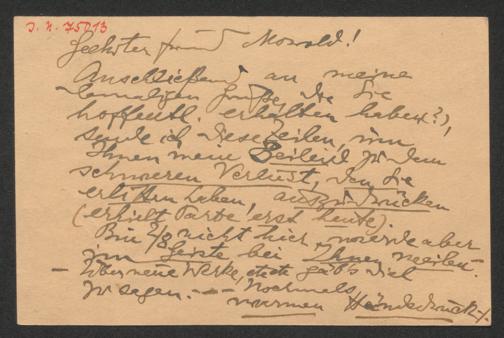 J. N. 75013
Geehrter Freund Morold!
Anschließend an meine
damaligen Grüße, die Sie
hoffentl. erhalten haben?),
sende ich diese Zeilen, um
Ihnen meine Beileid zu dem
schweren Verlust, den Sie
erlitten haben, auszudrücken
(erhielt Parte erst heute).
Bin nicht hier, werde aber
im Geiste bei Ihnen weilen.
– Über neue Werke, etc. gäb's viel
zu sagen. – – Nochmals
warmen Händedruck